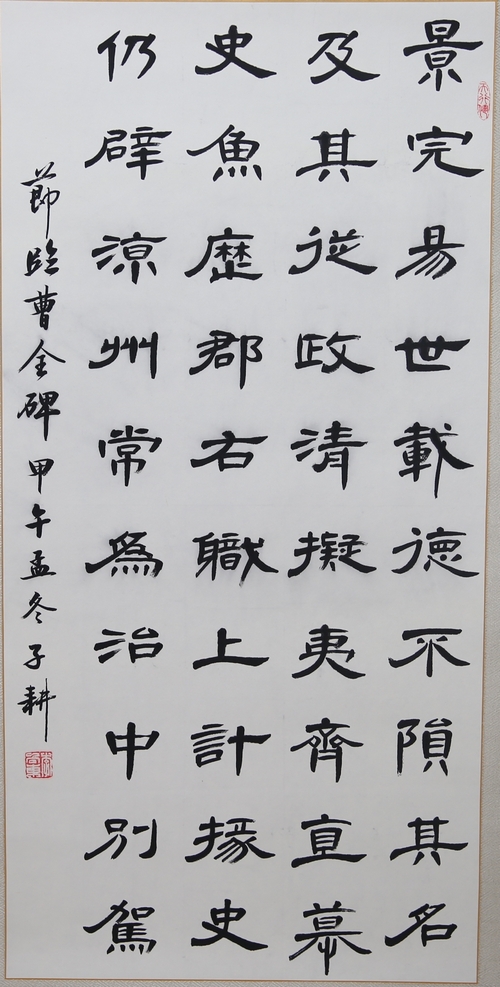 景完易世載德不隕其名
及其從政清擬夷齊直慕
史魚歷郡右職上計掾史
仍辟涼州常為治中別駕
節臨曹全碑 甲午孟冬 子耕